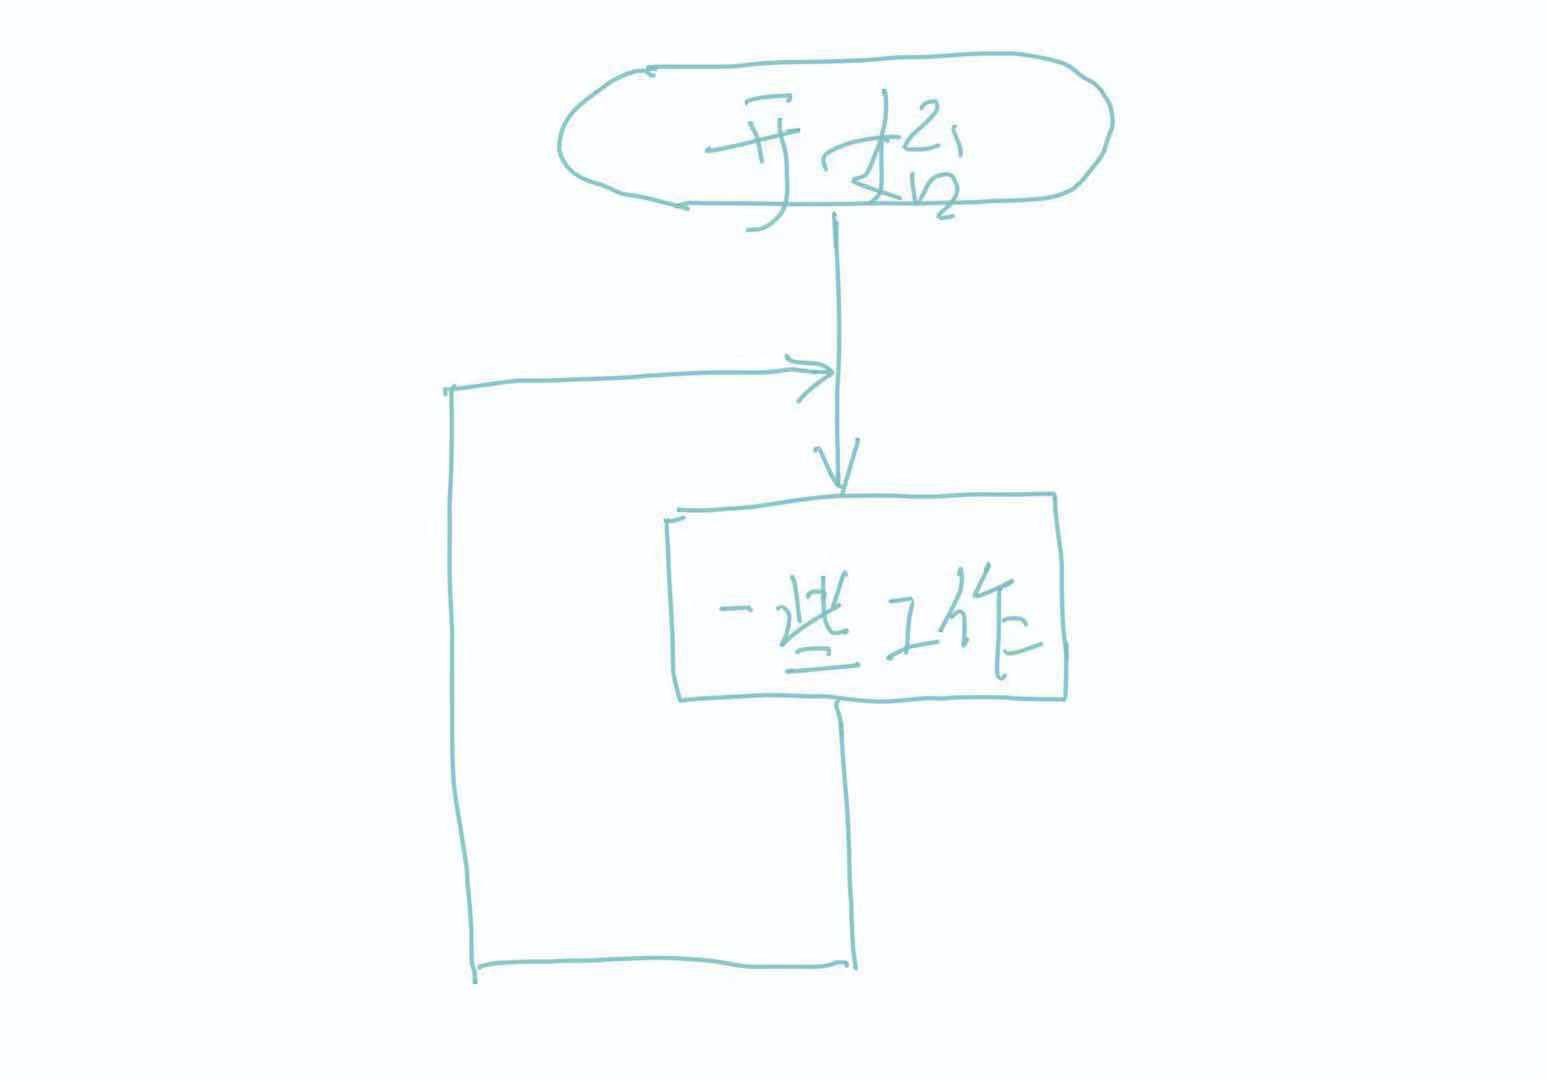 开始
一些工作